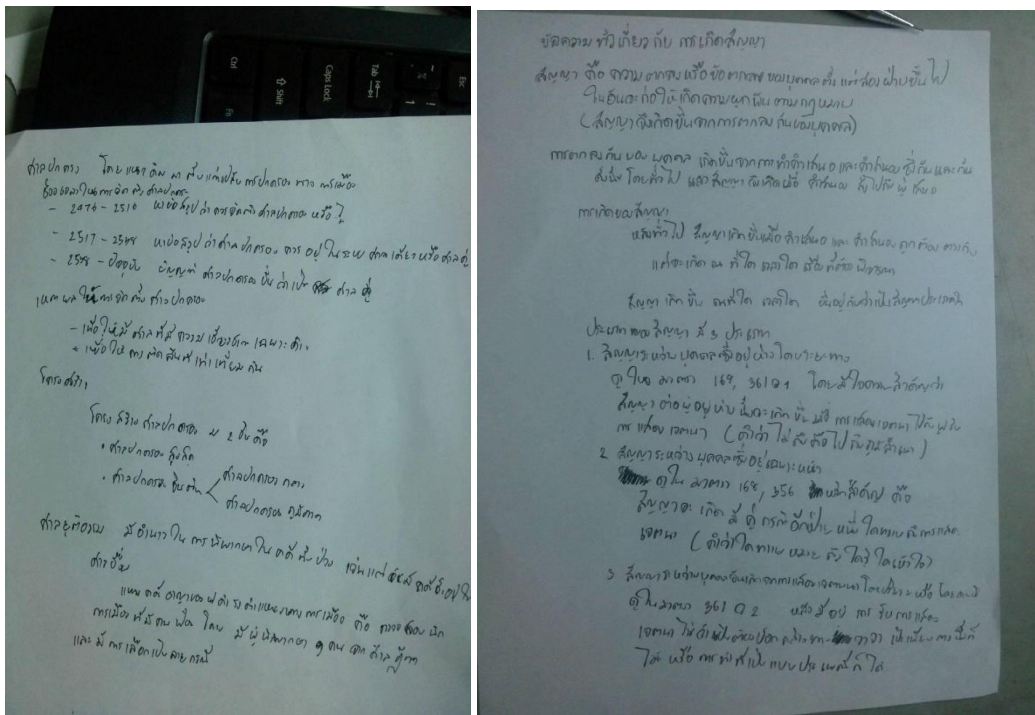 Esc
Tab
Caps Lock
Shift
Ctrl
Fn
ศาลปกครอง โดยแนวคิด การปกครอง ทาง การเมือง
ช่วงเวลาในการจัดตั้งศาลปกครอง
- 2476 - 2516 หาข้อสรุปว่าควรจัดตั้งศาลปกครอง หรือไม่
- 2517 - 2538 หาข้อสรุปว่าศาลปกครอง ควร อยู่ในระบบ ศาลเดี่ยวหรือศาลคู่
- 2538 - ปัจจุบัน บัญญัติ ศาลปกครอง ขึ้น ว่าเป็น ศาล คู่
เหตุผลให้การจัดตั้ง ศาลปกครอง
- เพื่อให้มีศาลที่มีความเชี่ยวชาญ เฉพาะด้าน
- เพื่อให้การตัดสินที่เท่าเทียมกัน
โครงสร้าง
โครงสร้างศาลปกครอง มี 2 ชั้น คือ
• ศาลปกครอง สูงสุด
• ศาลปกครอง ชั้นต้น ศาลปกครอง กลาง
ศาลปกครอง ภูมิภาค
ศาลยุติธรรม มีอำนาจในการพิพากษาในคดีทั้งปวง เว้นแต่ คดีอยู่ใน
ศาลอื่น
แผนกคดีอาญาของผู้ดำรงตำแหน่งทางการเมือง คือ นัก
การเมืองที่มีคนฟ้อง โดย มีผู้พิพากษา 9 คน จาก ศาลฎีกา
และ มีการเลือกเป็นรายกรณี
ข้อความทั่วเกี่ยวกับ การเกิดสัญญา
สัญญา คือ ความตกลงหรือข้อตกลงของบุคคลตั้งแต่สองฝ่ายขึ้นไป
ในอันจะก่อให้เกิดความผูกพันตามกฎหมาย
(สัญญาจึงเกิดขึ้นจากการตกลงกันของบุคคล)
การตกลงกันของบุคคล เกิดขึ้นจากการทำคำเสนอและคำสนองซึ่งกันและกัน
โดยทั่วไป แล้วสัญญาจะเกิดเมื่อ คำสนอง ถึงไปยังผู้เสนอ
การเกิดของสัญญา
หลักทั่วไป สัญญาเกิดขึ้นเมื่อคำเสนอ และ คำสนองถูกต้องตรงกัน
แต่จะเกิด ณ ที่ใด เวลาใด ที่ต้องพิจารณา
สัญญาเกิดขึ้น ณ ที่ใด เวลาใด ขึ้นอยู่กับว่าเป็นสัญญาประเภทใด
ประเภทของสัญญา มี 3 ประเภท
1. สัญญาระหว่างบุคคลซึ่งอยู่ห่างโดยระยะทาง
ดูใน มาตรา 169, 361 ว 1 โดยมีใจความสำคัญว่า
สัญญาต่อผู้อยู่ห่างนั้นจะเกิดขึ้นเมื่อการแสดงเจตนาไปถึงผู้รับ
การแสดงเจตนา
2. สัญญาระหว่างบุคคลซึ่งอยู่เฉพาะหน้า
ดูใน มาตรา 168, 356 หลักสำคัญ คือ
สัญญาจะเกิด คู่กรณีอีกฝ่ายหนึ่งได้ทราบถึงการแสดง
เจตนา (คำว่าได้ทราบหมายถึงได้รู้ได้เข้าใจ)
3. สัญญาระหว่างบุคคล การแสดงเจตนา โดย
ดูในมาตรา 361 ว 2 การรับการแสดง
เจตนาไม่จำเป็นต้อง วาจา
ไม่ หรือ การทำที่เป็นแบบประเพณีก็ได้